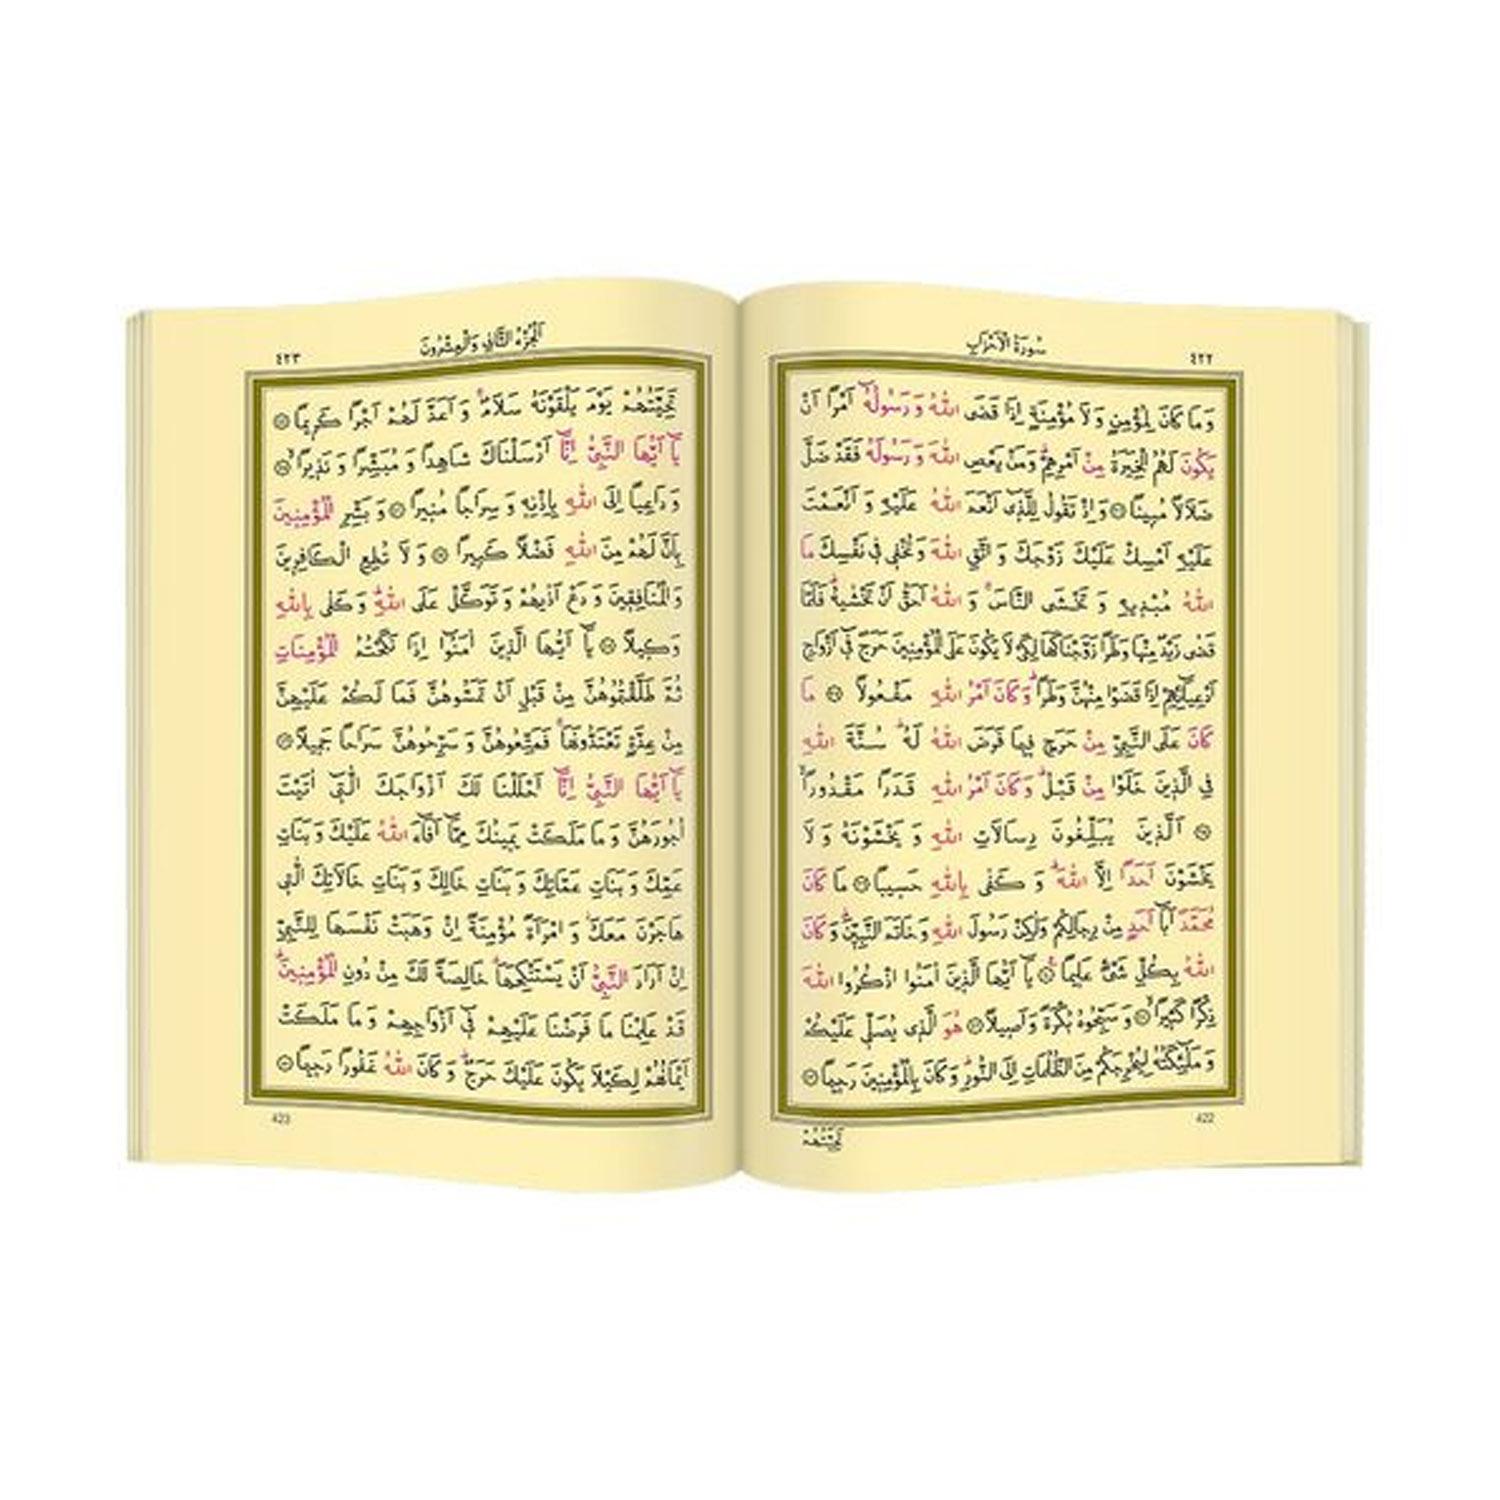 سُورَةُ الْاَحْزَابِ
٤٢٢
وَمَا كَانَ لِمُؤْمِنٍ وَلَا مُؤْمِنَةٍ اِذَا قَضَى اللّٰهُ وَرَسُولُهُٓ اَمْرًا اَنْ
يَكُونَ لَهُمُ الْخِيَرَةُ مِنْ اَمْرِهِمْۜ وَمَنْ يَعْصِ اللّٰهَ وَرَسُولَهُ فَقَدْ ضَلَّ
ضَلَالًا مُبِينًا وَاِذْ تَقُولُ لِلَّذِٓي اَنْعَمَ اللّٰهُ عَلَيْهِ وَاَنْعَمْتَ
عَلَيْهِ اَمْسِكْ عَلَيْكَ زَوْجَكَ وَاتَّقِ اللّٰهَ وَتُخْفِي فِي نَفْسِكَ مَا
اللّٰهُ مُبْدِيهِ وَتَخْشَى النَّاسَۚ وَاللّٰهُ اَحَقُّ اَنْ تَخْشٰيهُۜ فَلَمَّا
قَضٰى زَيْدٌ مِنْهَا وَطَرًا زَوَّجْنَاكَهَا لِكَيْ لَا يَكُونَ عَلَى الْمُؤْمِنِينَ حَرَجٌ فِٓي اَزْوَاجِ
اَدْعِيَٓائِهِمْ اِذَا قَضَوْا مِنْهُنَّ وَطَرًاۜ وَكَانَ اَمْرُ اللّٰهِ مَفْعُولًا مَا
كَانَ عَلَى النَّبِيِّ مِنْ حَرَجٍ فِيمَا فَرَضَ اللّٰهُ لَهُۜ سُنَّةَ اللّٰهِ
فِي الَّذِينَ خَلَوْا مِنْ قَبْلُۜ وَكَانَ اَمْرُ اللّٰهِ قَدَرًا مَقْدُورًاۙ
اَلَّذِينَ يُبَلِّغُونَ رِسَالَاتِ اللّٰهِ وَيَخْشَوْنَهُ وَلَا
يَخْشَوْنَ اَحَدًا اِلَّا اللّٰهَۜ وَكَفٰى بِاللّٰهِ حَسِيبًا مَا كَانَ
مُحَمَّدٌ اَبَٓا اَحَدٍ مِنْ رِجَالِكُمْ وَلٰكِنْ رَسُولَ اللّٰهِ وَخَاتَمَ النَّبِيِّنَۜ وَكَانَ
اللّٰهُ بِكُلِّ شَيْءٍ عَلِيمًا۟ يَٓا اَيُّهَا الَّذِينَ اٰمَنُوا اذْكُرُوا اللّٰهَ
ذِكْرًا كَثِيرًاۙ وَسَبِّحُوهُ بُكْرَةً وَاَصِيلًا هُوَ الَّذِي يُصَلِّي عَلَيْكُمْ
وَمَلٰٓئِكَتُهُ لِيُخْرِجَكُمْ مِنَ الظُّلُمَاتِ اِلَى النُّورِۜ وَكَانَ بِالْمُؤْمِنِينَ رَحِيمًا
422
تَحِيَّتُهُمْ
اَلْجُزْءُ الثَّانِي وَالْعِشْرُونَ
٤٢٣
تَحِيَّتُهُمْ يَوْمَ يَلْقَوْنَهُ سَلَامٌۚ وَاَعَدَّ لَهُمْ اَجْرًا كَرِيمًا
يَٓا اَيُّهَا النَّبِيُّ اِنَّٓا اَرْسَلْنَاكَ شَاهِدًا وَمُبَشِّرًا وَنَذِيرًاۙ
وَدَاعِيًا اِلَى اللّٰهِ بِاِذْنِهِ وَسِرَاجًا مُنِيرًا وَبَشِّرِ الْمُؤْمِنِينَ
بِاَنَّ لَهُمْ مِنَ اللّٰهِ فَضْلًا كَبِيرًا وَلَا تُطِعِ الْكَافِرِينَ
وَالْمُنَافِقِينَ وَدَعْ اَذٰيهُمْ وَتَوَكَّلْ عَلَى اللّٰهِۜ وَكَفٰى بِاللّٰهِ
وَكِيلًا يَٓا اَيُّهَا الَّذِينَ اٰمَنُٓوا اِذَا نَكَحْتُمُ الْمُؤْمِنَاتِ
ثُمَّ طَلَّقْتُمُوهُنَّ مِنْ قَبْلِ اَنْ تَمَسُّوهُنَّ فَمَا لَكُمْ عَلَيْهِنَّ
مِنْ عِدَّةٍ تَعْتَدُّونَهَاۚ فَمَتِّعُوهُنَّ وَسَرِّحُوهُنَّ سَرَاحًا جَمِيلًا
يَٓا اَيُّهَا النَّبِيُّ اِنَّٓا اَحْلَلْنَا لَكَ اَزْوَاجَكَ الّٰتِٓي اٰتَيْتَ
اُجُورَهُنَّ وَمَا مَلَكَتْ يَمِينُكَ مِمَّٓا اَفَٓاءَ اللّٰهُ عَلَيْكَ وَبَنَاتِ
عَمِّكَ وَبَنَاتِ عَمَّاتِكَ وَبَنَاتِ خَالِكَ وَبَنَاتِ خَالَاتِكَ الّٰتِي
هَاجَرْنَ مَعَكَۘ وَامْرَاَةً مُؤْمِنَةً اِنْ وَهَبَتْ نَفْسَهَا لِلنَّبِيِّ
اِنْ اَرَادَ النَّبِيُّ اَنْ يَسْتَنْكِحَهَاۗ خَالِصَةً لَكَ مِنْ دُونِ الْمُؤْمِنِينَۜ
قَدْ عَلِمْنَا مَا فَرَضْنَا عَلَيْهِمْ فِٓي اَزْوَاجِهِمْ وَمَا مَلَكَتْ
اَيْمَانُهُمْ لِكَيْلَا يَكُونَ عَلَيْكَ حَرَجٌۜ وَكَانَ اللّٰهُ غَفُورًا رَحِيمًا
423